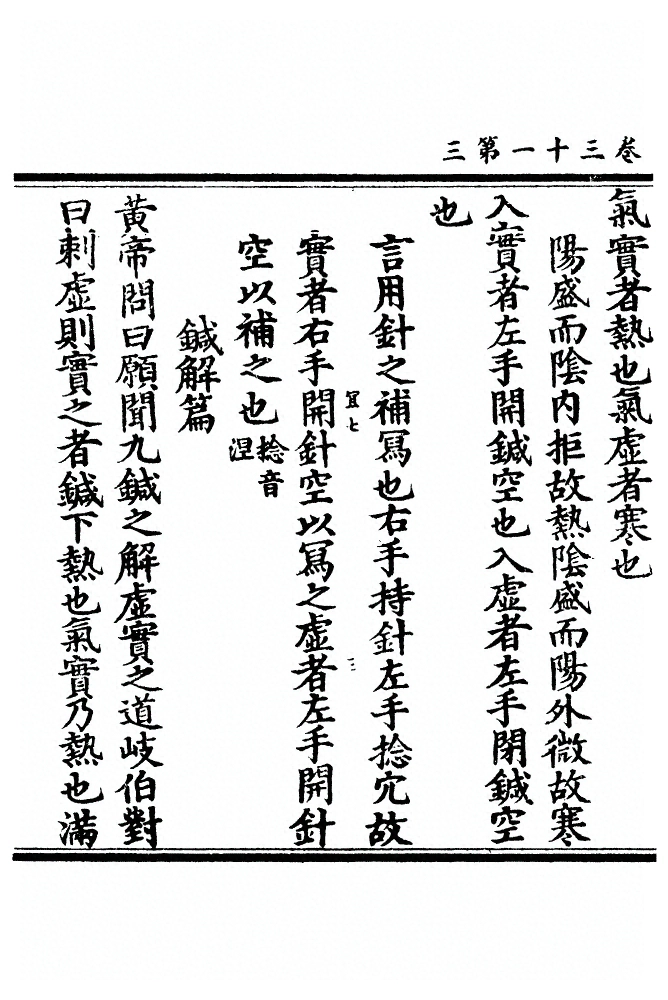 卷三十一第三
氣實者熱也氣虛者寒也
陽盛而陰內拒故熱陰盛而陽外微故寒
入實者左手開鍼空也入虛者左手閉鍼空
也
言用針之補冩也右手持針左手捻穴故
冝七
三
實者右手開針空以冩之虛者左手開針
空以補之也捻音涅
鍼解篇
黃帝問曰願聞九鍼之解虛實之道岐伯對
曰刺虛則實之者鍼下熱也氣實乃熱也滿